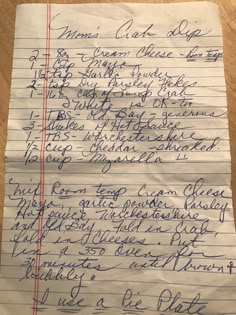 Mom's Crab Dip
2 - 8oz - Cream Cheese - Room Temp
1 - Cup - Mayo
1 1/2 tsp Garlic Powder
2 - tsp Dry Parsley Flakes
1 - 16oz can of Jump Crab
White is OK - to
1 - TBS - Old Bay - generous
3 - Shakes of Hot Sauce
1 - TBS - Worchestershire
1/2 cup - Cheddar - shredded
1/2 cup - Mozarella "
Mix Room temp Cream Cheese
Mayo, garlic powder, Parsley
Hot sauce, Worchestershire,
and Old Bay. Fold in Crab,
fold in Cheeses. Put
in a 350 Oven for
30 minutes until brown &
bubbly.
I use a Pie Plate